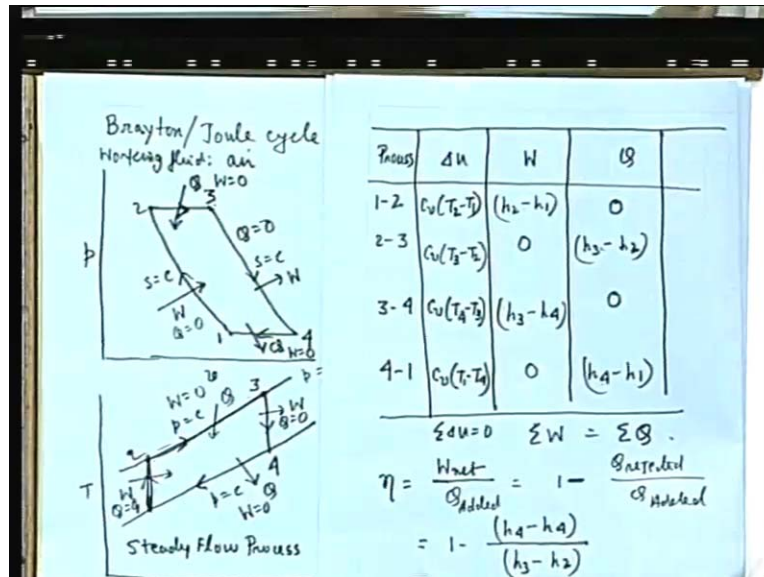 Brayton/Joule cycle
Working fluid: air
Q W=0
2 3
Q=0
p
s=c
s=c
W
W
Q=0
1 4
Q W=0
W=0 Q 3
p=c
W
Q=0
2
T
W
4
p=c Q
W=0
Steady Flow Process
Process Δu W Q
1-2 Cv(T2-T1) (h2-h1) 0
2-3 Cv(T3-T2) 0 (h3-h2)
3-4 Cv(T4-T3) (h3-h4) 0
4-1 Cv(T1-T4) 0 (h4-h1)
ΣΔu=0 ΣW = ΣQ.
η = Wnet/QAdded = 1- Qrejected/QAdded
= 1- (h4-h4)/(h3-h2)